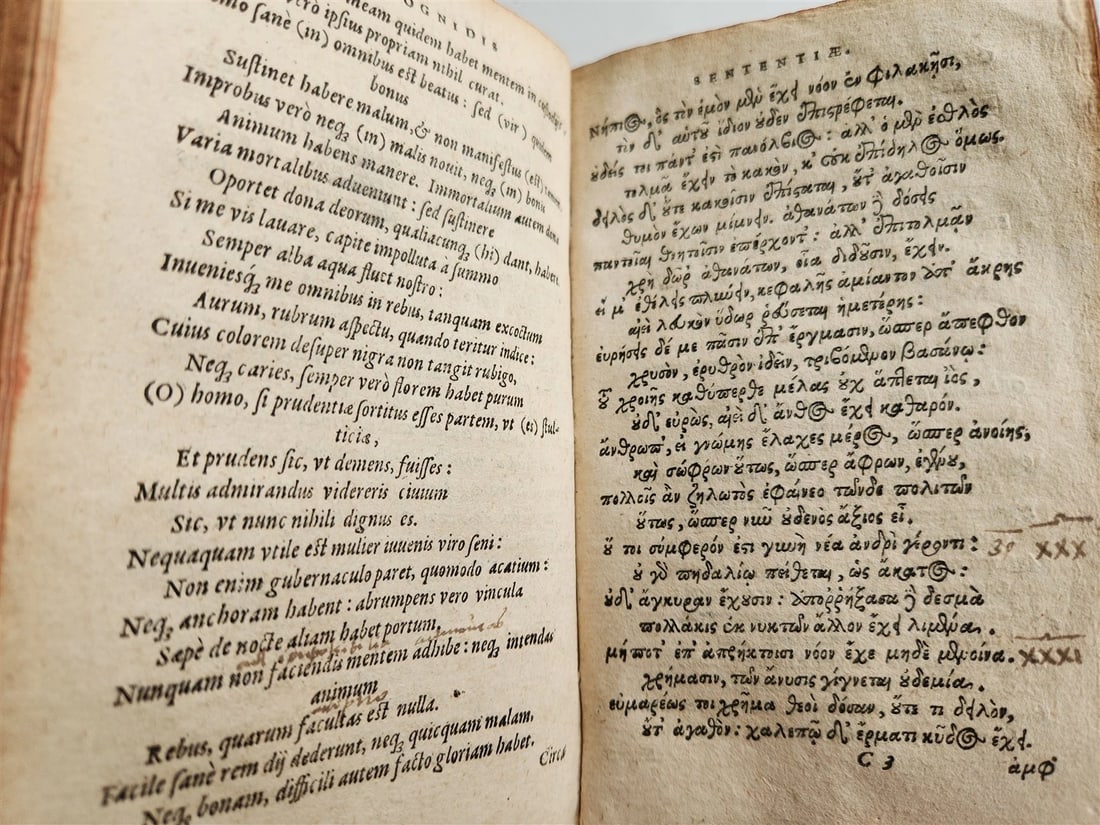 OGNIDIS
meam quidem habet mentem in
verò ipsius propriam nihil curat.
omo sanè (in) omnibus est beatus: sed (vir) quidem
bonus
Sustinet habere malum, & non manifestus (est)
Improbus verò neq; (in) malis nouit, neq; (in) bonis
Animum habens manere. Immortalium autem dona
Varia mortalibus adueniunt: sed sustinere
Oportet dona deorum, qualiacunq; (hi) dant, habere.
Si me vis lauare, capite impolluta à summo
Semper alba aqua fluet nostro:
Inueniesq; me omnibus in rebus, tanquam excoctum
Aurum, rubrum aspectu, quando teritur indice:
Cuius colorem desuper nigra non tangit rubigo,
Neq; caries, semper verò florem habet purum
(O) homo, si prudentiæ sortitus esses partem, vt (es) stul-
ticiæ,
Et prudens sic, vt demens, fuisses:
Multis admirandus videreris ciuium
Sic, vt nunc nihili dignus es.
Nequaquam vtile est mulier iuuenis viro seni:
Non enim gubernaculo paret, quomodo acatium:
Neq; anchoram habent: abrumpens vero vincula
Sæpè de nocte alium habet portum,
Nunquam non faciendis mentem adhibe: neq; intendas
animum
Rebus, quarum facultas est nulla.
Facile sanè rem dij dederunt, neq; quicquam malam,
Neq; bonam, difficili autem facto gloriam habet.
Circa
SENTENTIÆ.
Νήπιος, ὃς τὸν ἐμὸν μὲν ἔχει νόον ἐν φιλακῇσι,
τὸν δ' αὐτοῦ ἴδιον οὐδὲν ἐπιστρέφεται.
οὐδείς τοι πάντ' ἐστὶ πανόλβιος: ἀλλ' ὁ μὲν ἐσθλὸς
τολμᾷ ἔχειν τὸ κακὸν, κ' οὐκ ἐπίδηλος ὅμως.
δειλὸς δ' οὔτε κακοῖσιν ἐπίσταται, οὔτ' ἀγαθοῖσιν
θυμὸν ἔχων μίμνειν. ἀθανάτων δὲ δόσης
παντοῖαι θνητοῖσιν ἐπέρχοντ': ἀλλ' ἐπιτολμᾶν
χρὴ δῶρ' ἀθανάτων, οἷα διδοῦσιν, ἔχειν.
εἴ μ' ἐθέλῃς πλύνειν, κεφαλῆς ἀμίαντον ἀπ' ἄκρης
αἰεὶ λευκὸν ὕδωρ ῥεύσεται ἡμετέρης:
εὑρήσεις δέ με πᾶσιν ἐπ' ἔργμασιν, ὥσπερ ἄπεφθον
χρυσὸν, ἐρυθρὸν ἰδεῖν, τριβόμενον βασάνῳ:
τοῦ χροιῆς καθύπερθε μέλας οὐχ ἅπτεται ἰὸς,
οὐδ' εὐρὼς, αἰεὶ δ' ἄνθος ἔχει καθαρόν.
ἄνθρωπ', εἰ γνώμης ἔλαχες μέρος, ὥσπερ ἀνοίης,
καὶ σώφρων οὕτως, ὥσπερ ἄφρων, ἐγένου,
πολλοῖς ἂν ζηλωτὸς ἐφαίνεο τῶνδε πολιτῶν
οὕτως, ὥσπερ νῦν οὐδενὸς ἄξιος εἶ.
οὔ τοι σύμφερόν ἐστι γυνὴ νέα ἀνδρὶ γέροντι: 30 XXX
οὐ γὰρ πηδαλίῳ πείθεται, ὡς ἄκατος:
οὐδ' ἄγκυραν ἔχουσιν: ἀπορρήξασα δὲ δεσμὰ
πολλάκις ἐκ νυκτῶν ἄλλον ἔχει λιμένα.
μήποτ' ἐπ' ἀπρήκτοισι νόον ἔχε μηδὲ μενοίνα. XXXI
χρήμασιν, τῶν ἄνυσις γίγνεται οὐδεμία.
εὐμαρέως τοι χρῆμα θεοὶ δόσαν, οὔτε τι δειλὸν,
οὔτ' ἀγαθὸν: χαλεπῷ δ' ἔρματι κῦδος ἔχει.
C 3
ἀμφ'